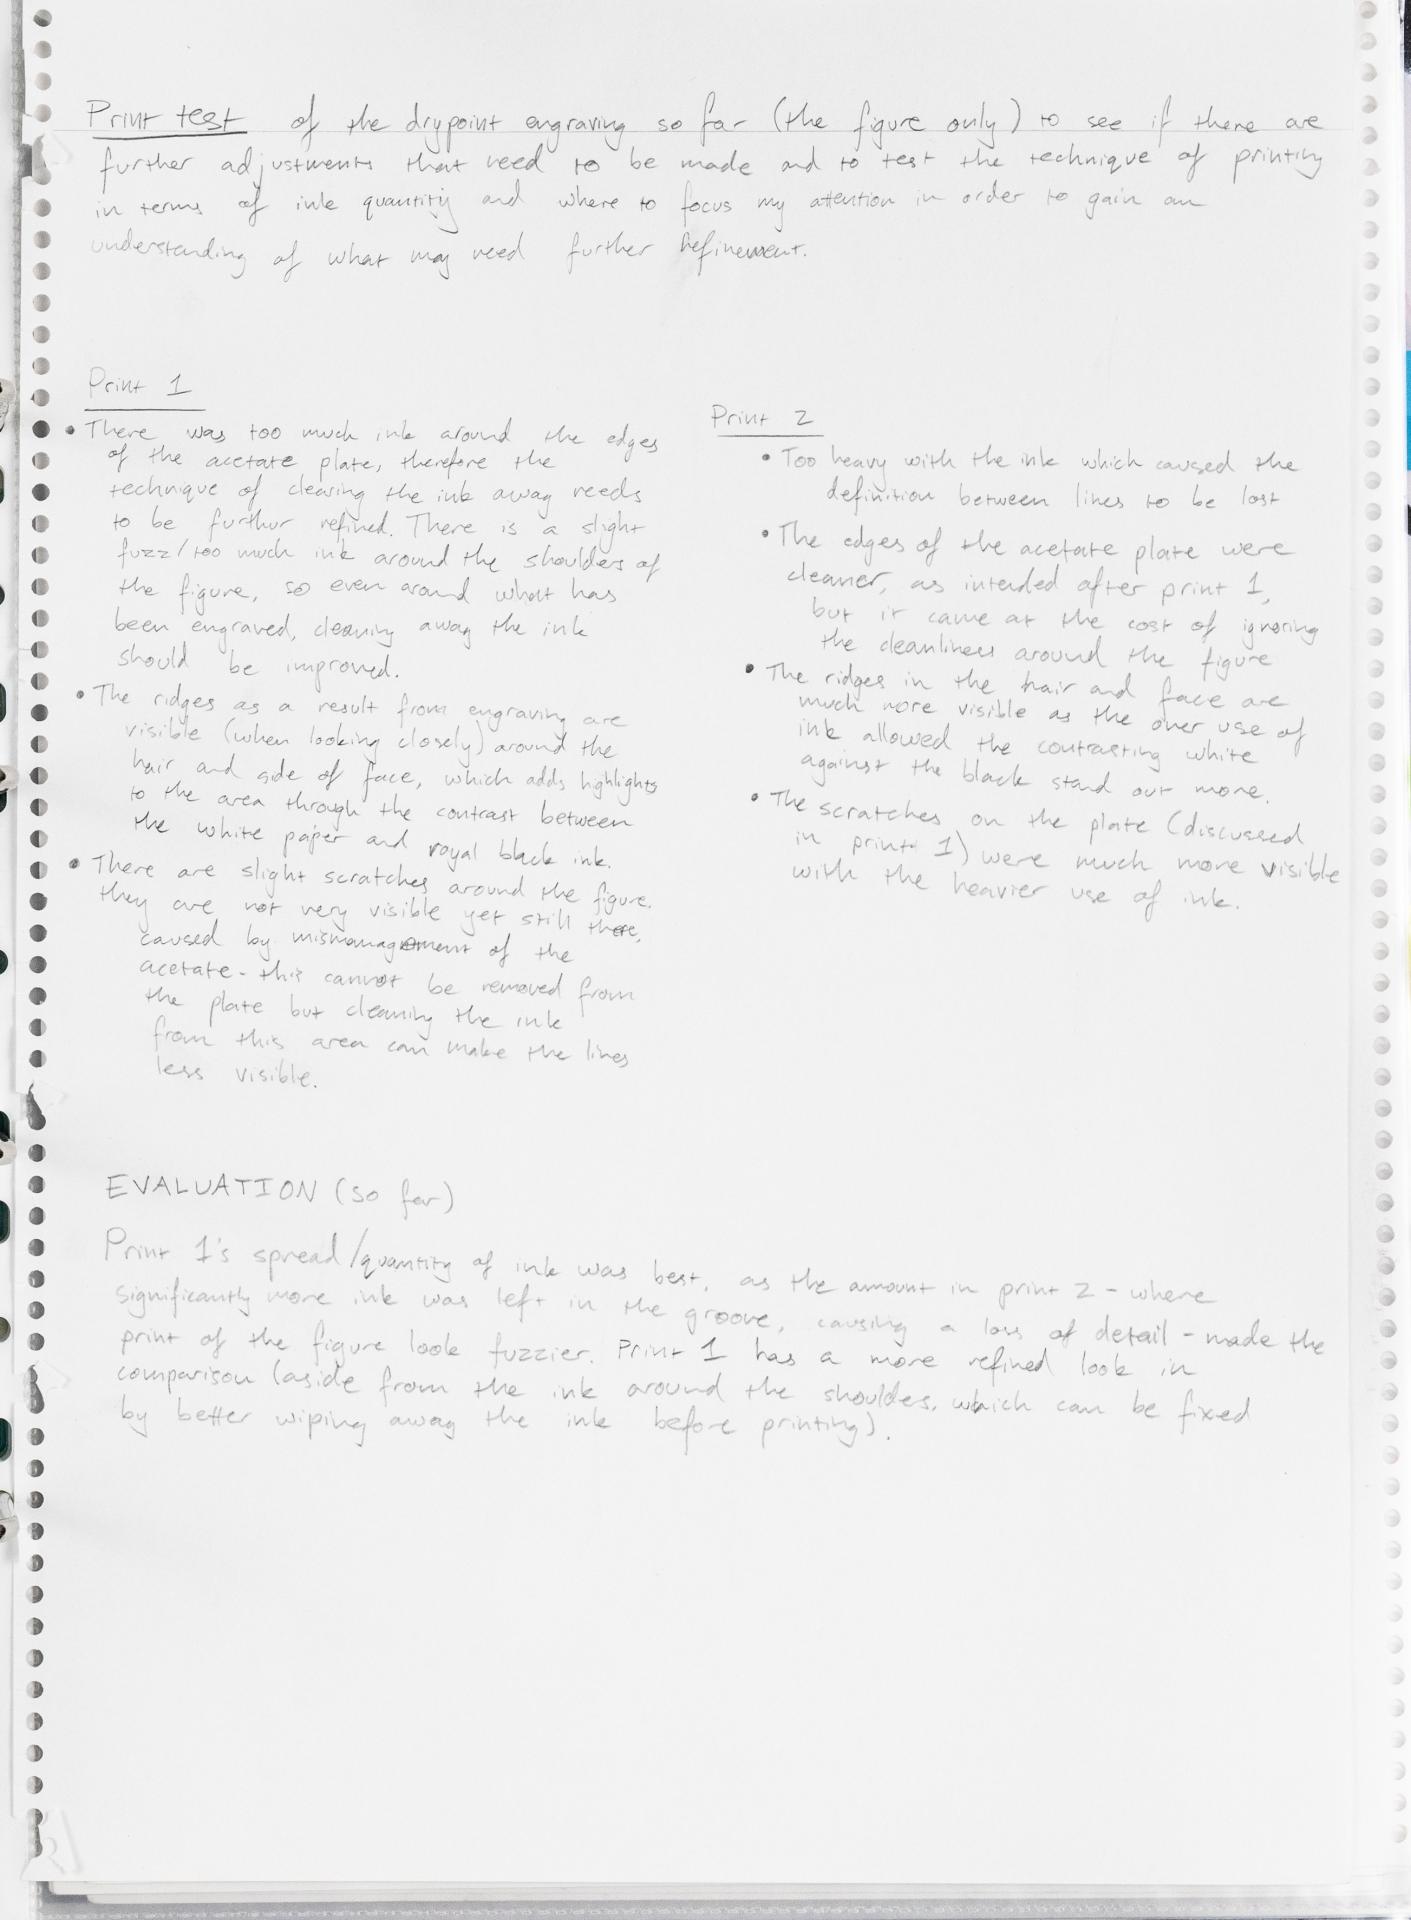 Print test of the drypoint engraving so far (the figure only) to see if there are
further adjustments that need to be made and to test the technique of printing
in terms of ink quantity and where to focus my attention in order to gain an
understanding of what may need further refinement.
Print 1
• There was too much ink around the edges
of the acetate plate, therefore the
technique of clearing the ink away needs
to be furthur refined. There is a slight
fuzz/too much ink around the shoulders of
the figure, so even around what has
been engraved, cleaning away the ink
should be improved.
• The ridges as a result from engraving are
visible (when looking closely) around the
hair and side of face, which adds highlights
to the area through the contrast between
the white paper and royal black ink.
• There are slight scratches around the figure.
they are not very visible yet still there,
caused by mismanagement of the
acetate - this cannot be removed from
the plate but cleaning the ink
from this area can make the lines
less visible.
Print 2
• Too heavy with the ink which caused the
definition between lines to be lost
• The edges of the acetate plate were
cleaner, as intended after print 1,
but it came at the cost of ignoring
the cleanliness around the figure
• The ridges in the hair and face are
much more visible as the over use of
ink allowed the contrasting white
against the black stand out more.
• The scratches on the plate (discussed
in print 1) were much more visible
with the heavier use of ink.
EVALUATION (so far)
Print 1's spread/quantity of ink was best, as the amount in print 2 - where
significantly more ink was left in the groove, causing a loss of detail - made the
print of the figure look fuzzier. Print 1 has a more refined look in
comparison (aside from the ink around the shoulders, which can be fixed
by better wiping away the ink before printing).